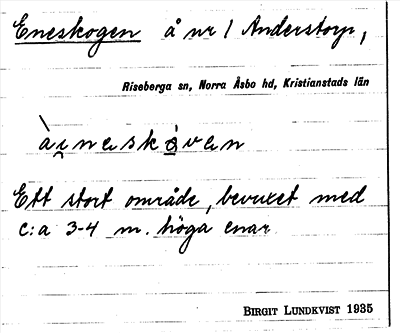 Eneskogen å nr 1 Anderstorp,
Riseberga sn, Norra Åsbo hd, Kristianstads län
Ett stort område, bevuxet med
c:a 3-4 m. höga enar
BIRGIT LUNDKVIST 1935